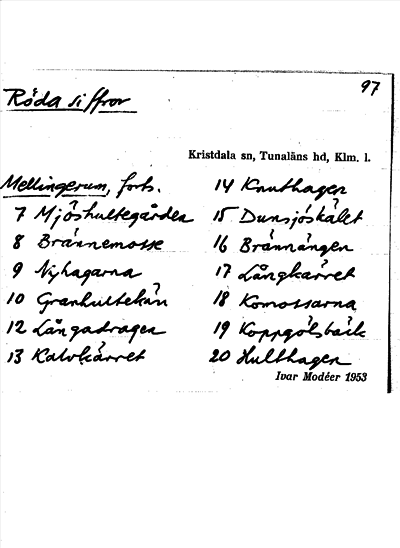 97
Röda siffror
Kristdala sn, Tunaläns hd, Klm. l.
Mellingerum, forts.
7 Mjöshultegärden
8 Brännemosse
9 Nyhagarna
10 Granhultekän
12 Långadragen
13 Kalvkärret
14 Knuthagen
15 Dunsjöskälet
16 Brännängen
17 Långkärret
18 Komossarna
19 Koppgölsbäck
20 Hulthagen
Ivar Modéer 1953